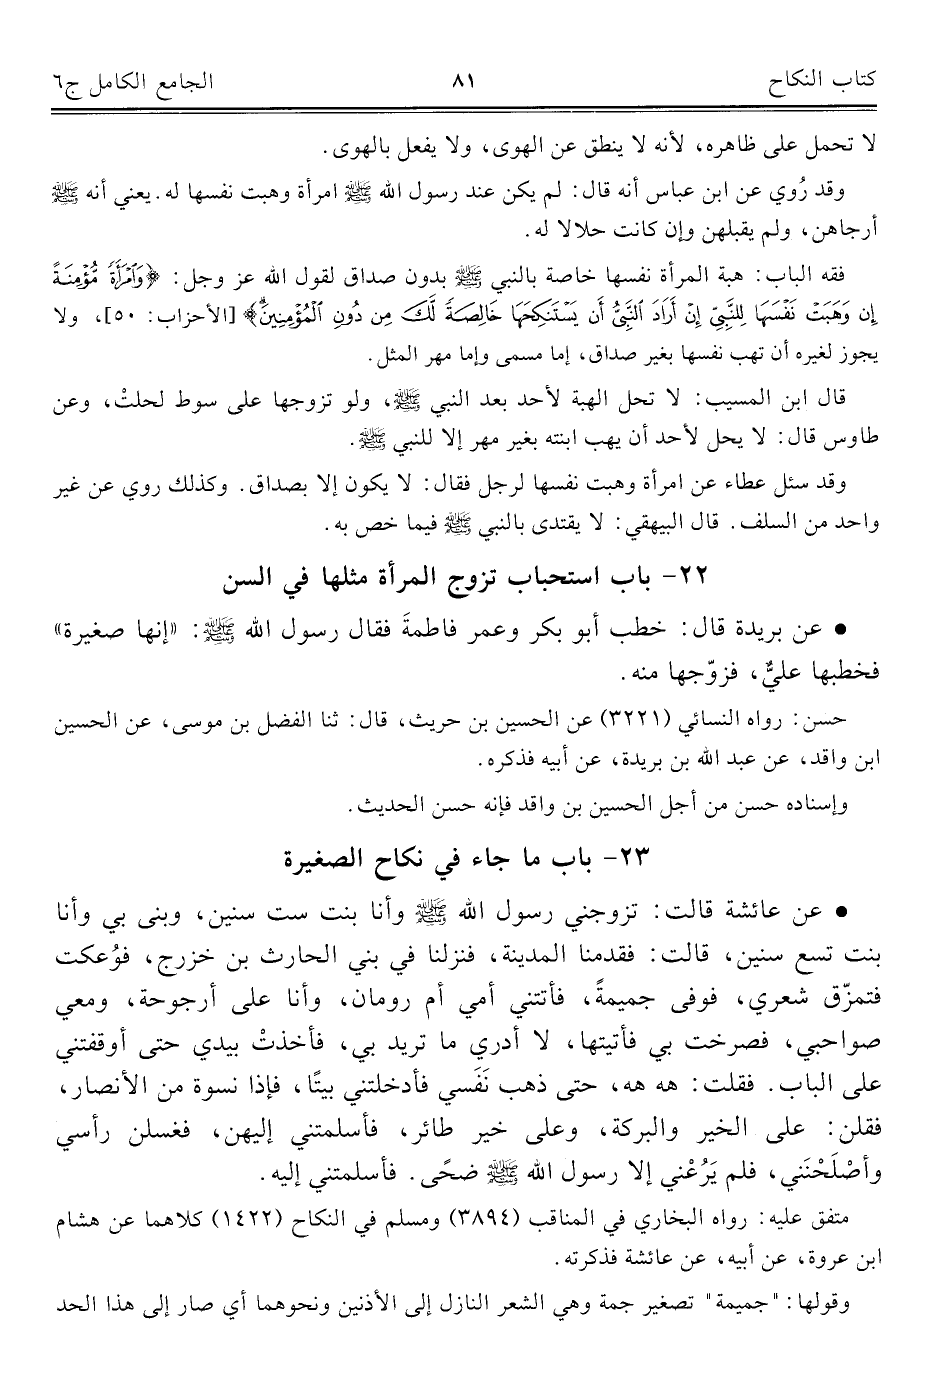 كتاب النكاح ٨١ الجامع الكامل ج٦
لا تحمل على ظاهره، لأنه لا ينطق عن الهوى، ولا يفعل بالهوى.
وقد رُوي عن ابن عباس أنه قال: لم يكن عند رسول الله ﷺ امرأة وهبت نفسها له. يعني أنه ﷺ
أرجاهن، ولم يقبلهن وإن كانت حلالا له.
فقه الباب: هبة المرأة نفسها خاصة بالنبي ﷺ بدون صداق لقول الله عز وجل: ﴿وَٱمْرَأَةً مُّؤْمِنَةً
إِن وَهَبَتْ نَفْسَهَا لِلنَّبِيِّ إِنْ أَرَادَ ٱلنَّبِيُّ أَن يَسْتَنكِحَهَا خَالِصَةً لَّكَ مِن دُونِ ٱلْمُؤْمِنِينَۗ﴾ [الأحزاب: ٥٠]، ولا
يجوز لغيره أن تهب نفسها بغير صداق، إما مسمى وإما مهر المثل.
قال ابن المسيب: لا تحل الهبة لأحد بعد النبي ﷺ، ولو تزوجها على سوط لحلتْ، وعن
طاوس قال: لا يحل لأحد أن يهب ابنته بغير مهر إلا للنبي ﷺ.
وقد سئل عطاء عن امرأة وهبت نفسها لرجل فقال: لا يكون إلا بصداق. وكذلك روي عن غير
واحد من السلف. قال البيهقي: لا يقتدى بالنبي ﷺ فيما خص به.
٢٢- باب استحباب تزوج المرأة مثلها في السن
● عن بريدة قال: خطب أبو بكر وعمر فاطمةَ فقال رسول الله ﷺ: «إنها صغيرة»
فخطبها عليٌّ، فزوّجها منه.
حسن: رواه النسائي (٣٢٢١) عن الحسين بن حريث، قال: ثنا الفضل بن موسى، عن الحسين
ابن واقد، عن عبد الله بن بريدة، عن أبيه فذكره.
وإسناده حسن من أجل الحسين بن واقد فإنه حسن الحديث.
٢٣- باب ما جاء في نكاح الصغيرة
● عن عائشة قالت: تزوجني رسول الله ﷺ وأنا بنت ست سنين، وبنى بي وأنا
بنت تسع سنين، قالت: فقدمنا المدينة، فنزلنا في بني الحارث بن خزرج، فوُعكت
فتمزّق شعري، فوفى جميمةً، فأتتني أمي أم رومان، وأنا على أرجوحة، ومعي
صواحبي، فصرخت بي فأتيتها، لا أدري ما تريد بي، فأخذتْ بيدي حتى أوقفتني
على الباب. فقلت: هه هه، حتى ذهب نَفَسي فأدخلتني بيتًا، فإذا نسوة من الأنصار،
فقلن: على الخير والبركة، وعلى خير طائر، فأسلمتني إليهن، فغسلن رأسي
وأصْلَحْنَني، فلم يَرُعْني إلا رسول الله ﷺ ضحًى. فأسلمتني إليه.
متفق عليه: رواه البخاري في المناقب (٣٨٩٤) ومسلم في النكاح (١٤٢٢) كلاهما عن هشام
ابن عروة، عن أبيه، عن عائشة فذكرته.
وقولها: "جميمة" تصغير جمة وهي الشعر النازل إلى الأذنين ونحوهما أي صار إلى هذا الحد